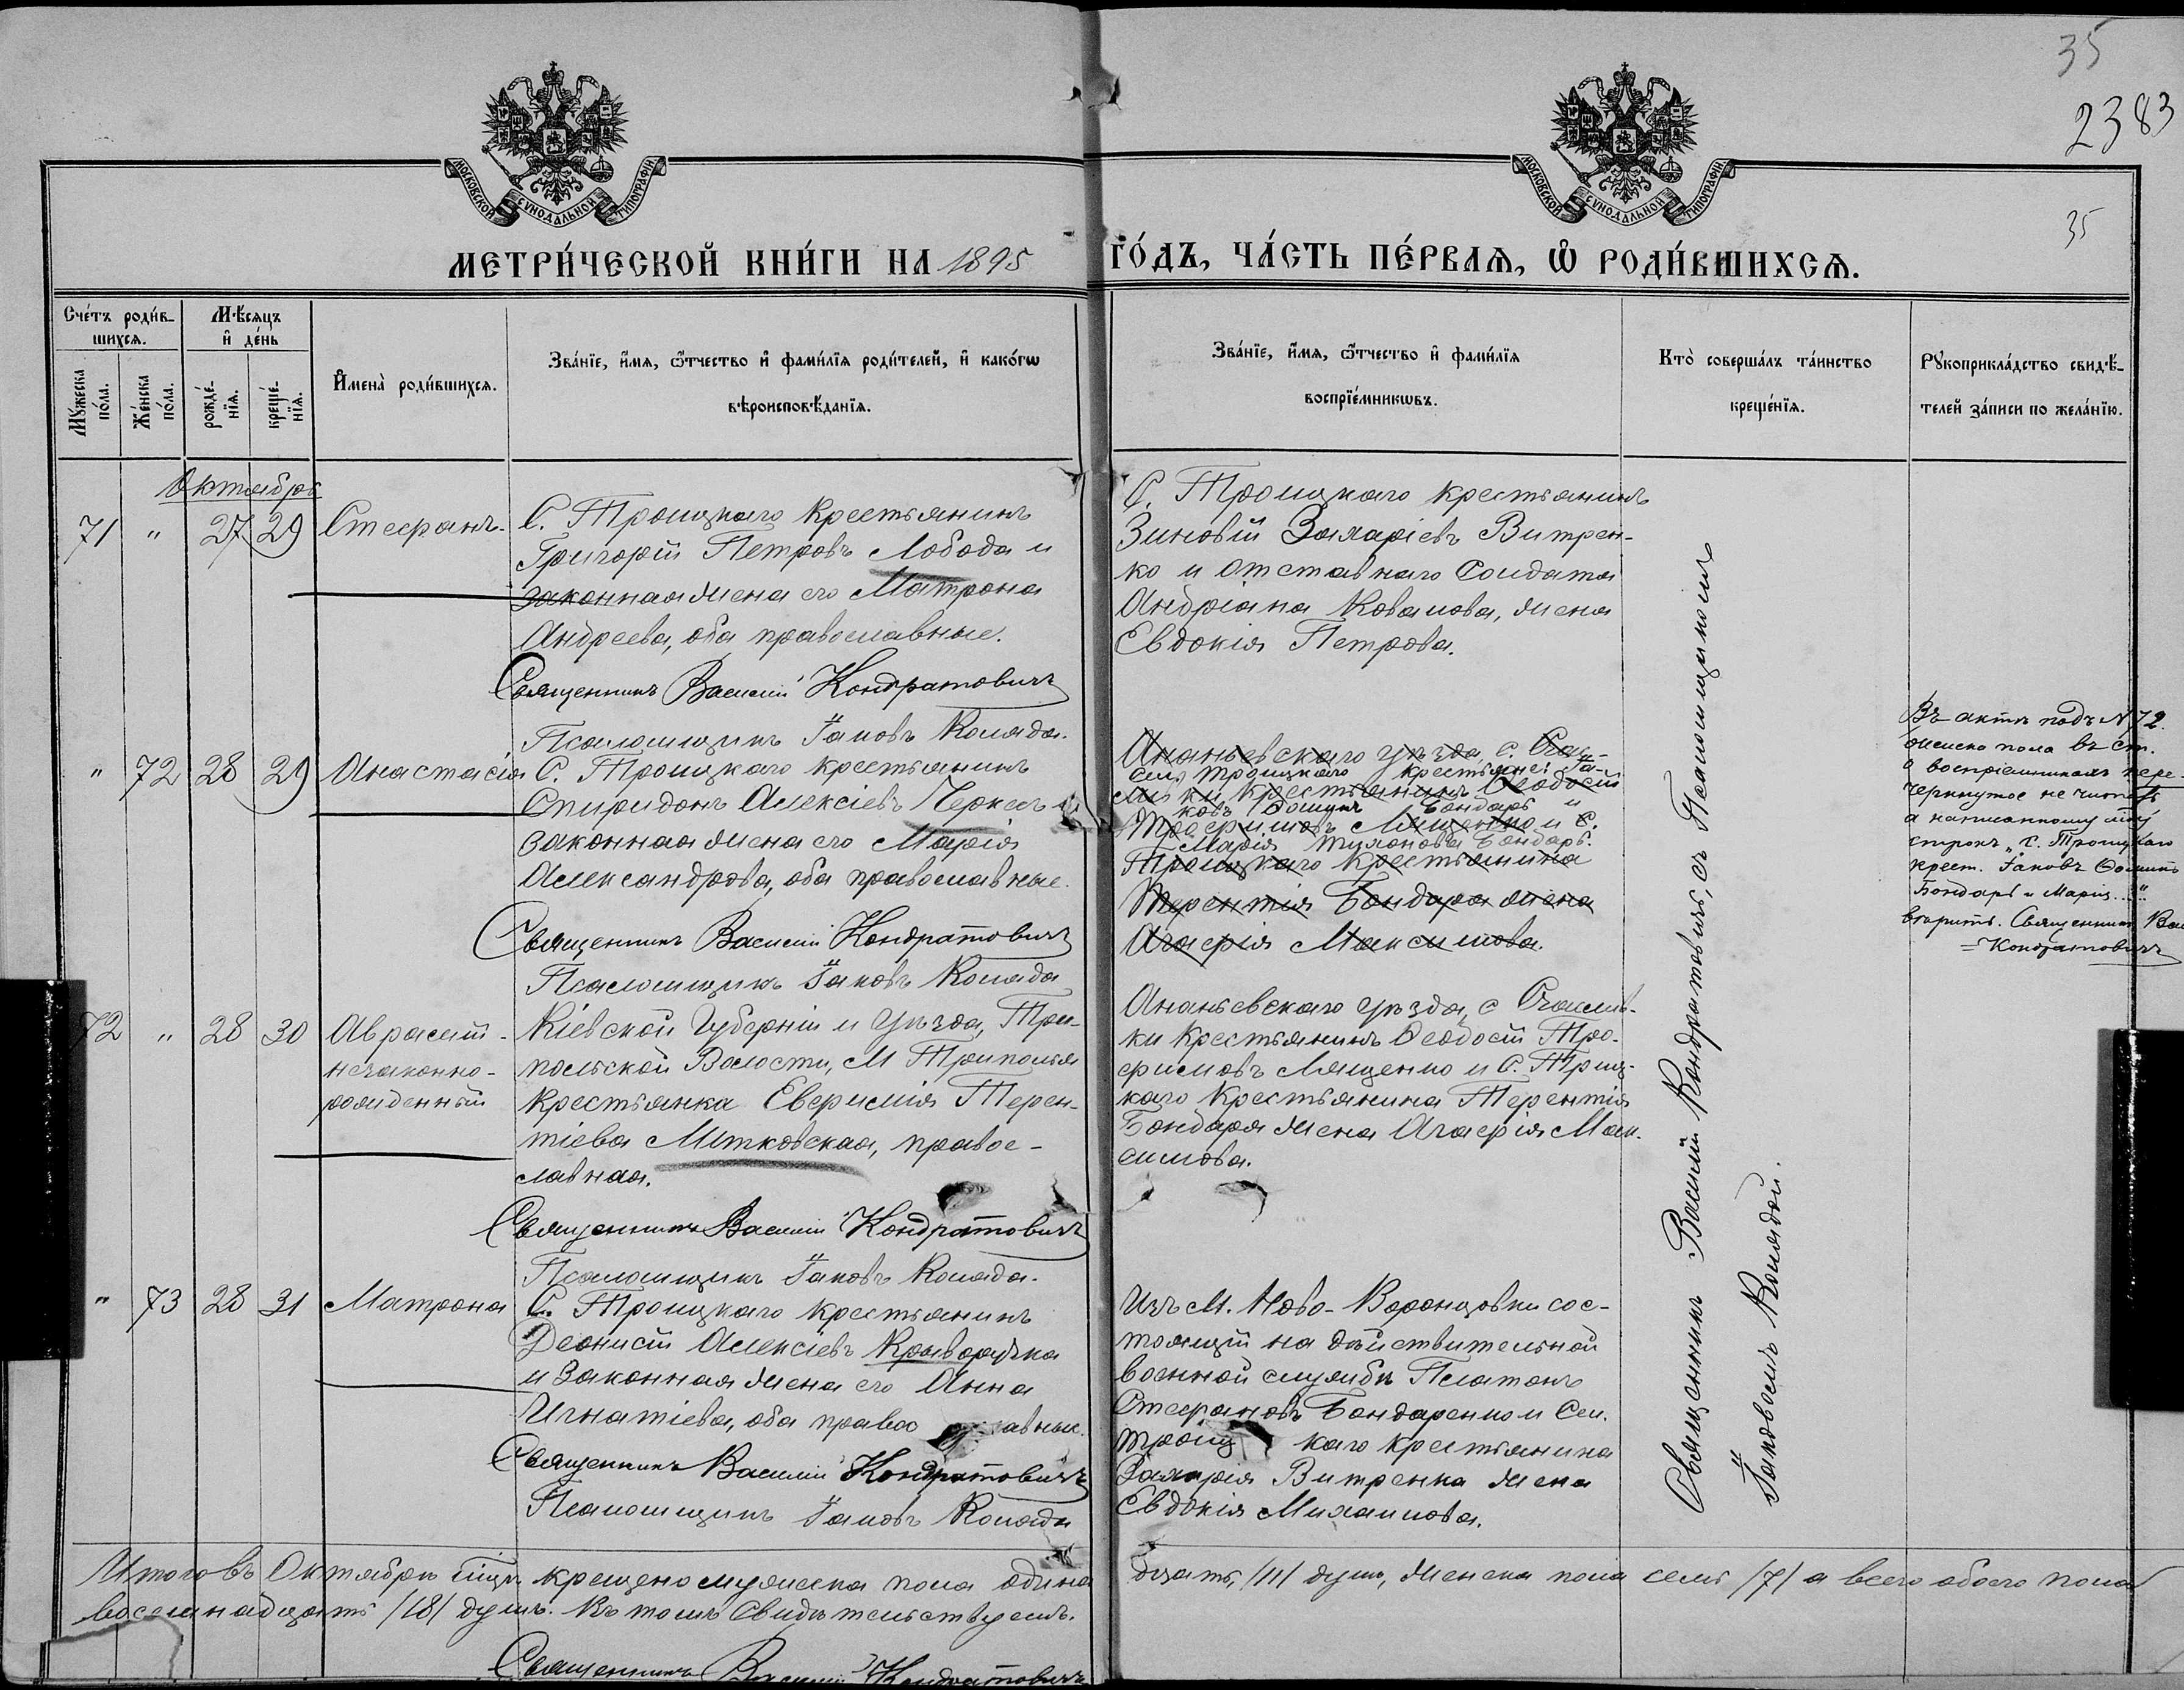 35
2383
35
МОСКОВСКОЙ СѴНОДАЛЬНОЙ ТИПОГРАФІИ
МОСКОВСКОЙ СѴНОДАЛЬНОЙ ТИПОГРАФІИ
МЕТРИ́ЧЕСКОЙ КНИ́ГИ НА 1895 ГО́ДЪ, ЧА́СТЬ ПЕ́РВАЯ, Ѡ РОДИ́ВШИХСЯ.
Сче́тъ роди́в-
шихся.
Мꙋ́жеска по́ла.
Же́нска по́ла.
Мѣ́сяцъ
и де́нь
рожде́-
нїя.
креще́-
нїя.
И҆мена̀ роди́вшихся.
Зва́нїе, и҆́мя, ѻ҆́тчество и҆ фами́лїя роди́телей, и҆ како́гѡ
вѣроисповѣ́данїя.
Зва́нїе, и҆́мя, ѻ҆́тчество и҆ фами́лїя
воспрїе́мникѡвъ.
Кто̀ соверша́лъ та́инство
креще́нїя.
Рꙋкоприкла́дство свидѣ́-
телей за́писи по жела́нїю.
Октябрь
71 " 27 29 Стефанъ.
С. Троицкаго крестьянинъ
Григорій Петровъ Лобода и
законная жена его Матрона
Андреева, оба православные.
Священникъ Василій Кондратовичъ
Псаломщикъ Іаковъ Коляда.
С. Троицкаго крестьянинъ
Зиновій Захаріевъ Витрен-
ко и отставного Солдата
Андріана Ковалова, жена
Евдокія Петрова.
" 72 28 29 Анастасія
С. Троицкаго крестьянинъ
Спиридонъ Алексіевъ Черкасъ и
законная жена его Марія
Александрова, оба православные.
Священникъ Василій Кондратовичъ
Псаломщикъ Іаковъ Коляда
Ананьевскаго уѣзда, с.
сел. Троицкаго крестьяне: Іа-
ки крестьянинъ Ѳеодосій
ковъ Ѳоминъ Бондарь и
Трофимовъ Лященко и С.
Марія Бондарь.
Троицкаго крестьянина
Терентія Бондаря жена
Агафія Максимова.
Въ актѣ подъ N 72
женска пола въ ст.
о воспріемникахъ пере-
черкнутое не читать
а написанному между
строкъ "С. Троицкаго
крест. Іаковъ Ѳоминъ
Бондарь и Марія..."
вѣрить. Священникъ Вас
Кондратовичъ
72 " 28 30
незаконно-
рожденный
Кіевской Губерніи и Уѣзда, Три-
польской Волости, М Триполья
крестьянка Евфимія Терен-
тіева Митковская, правос-
славная.
Священникъ Василій Кондратовичъ
Псаломщикъ Іаковъ Коляда.
Ананьевскаго Уѣзда, с
ки крестьянинъ Ѳеодосій Тро-
фимовъ Лященко и С. Троиц-
каго крестьянина Терентія
Бондаря жена Агафія Мак-
симова.
" 73 28 31 Матрона
С. Троицкаго крестьянинъ
Деонисій Алексіевъ Криворучка
и законная жена его Анна
Игнатіева, оба православные.
Священникъ Василій Кондратовичъ
Псаломщикъ Іаковъ Коляда
Изъ М. Ново-Воронцовки сос-
тоящій на дѣйствительной
военной службѣ Платонъ
Стефановъ Бондаренко и Сел.
Троицкаго крестьянина
Захарія Витренка жена
Евдокія Михаилова.
Священникъ Василій Кондратовичъ, съ Псаломщикомъ
Іаковомъ Колядой.
Итого въ Октябрѣ м-цѣ крещено мужеска пола одина
дцать /11/ душъ, женска пола семь /7/ а всего обоего пола
восемнадцать /18/ душъ. Въ томъ свидѣтельствуемъ.
Священникъ Василій Кондратовичъ